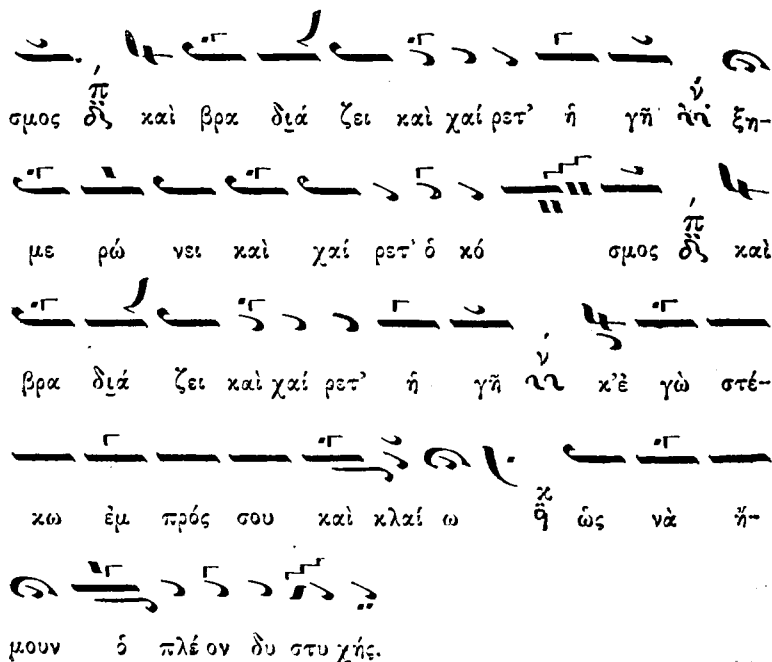 σμος καὶ βρα διά ζει καὶ χαί ρετ' ἡ γῆ ξη-
με ρώ νει καὶ χαί ρετ' ὁ κό σμος καὶ
βρα διά ζει καὶ χαί ρετ' ἡ γῆ κ'ἐ γὼ στέ-
κω ἐμ πρός σου καὶ κλαί ω ὡς νὰ ἤ-
μουν ὁ πλέ ον δυ στυ χής.